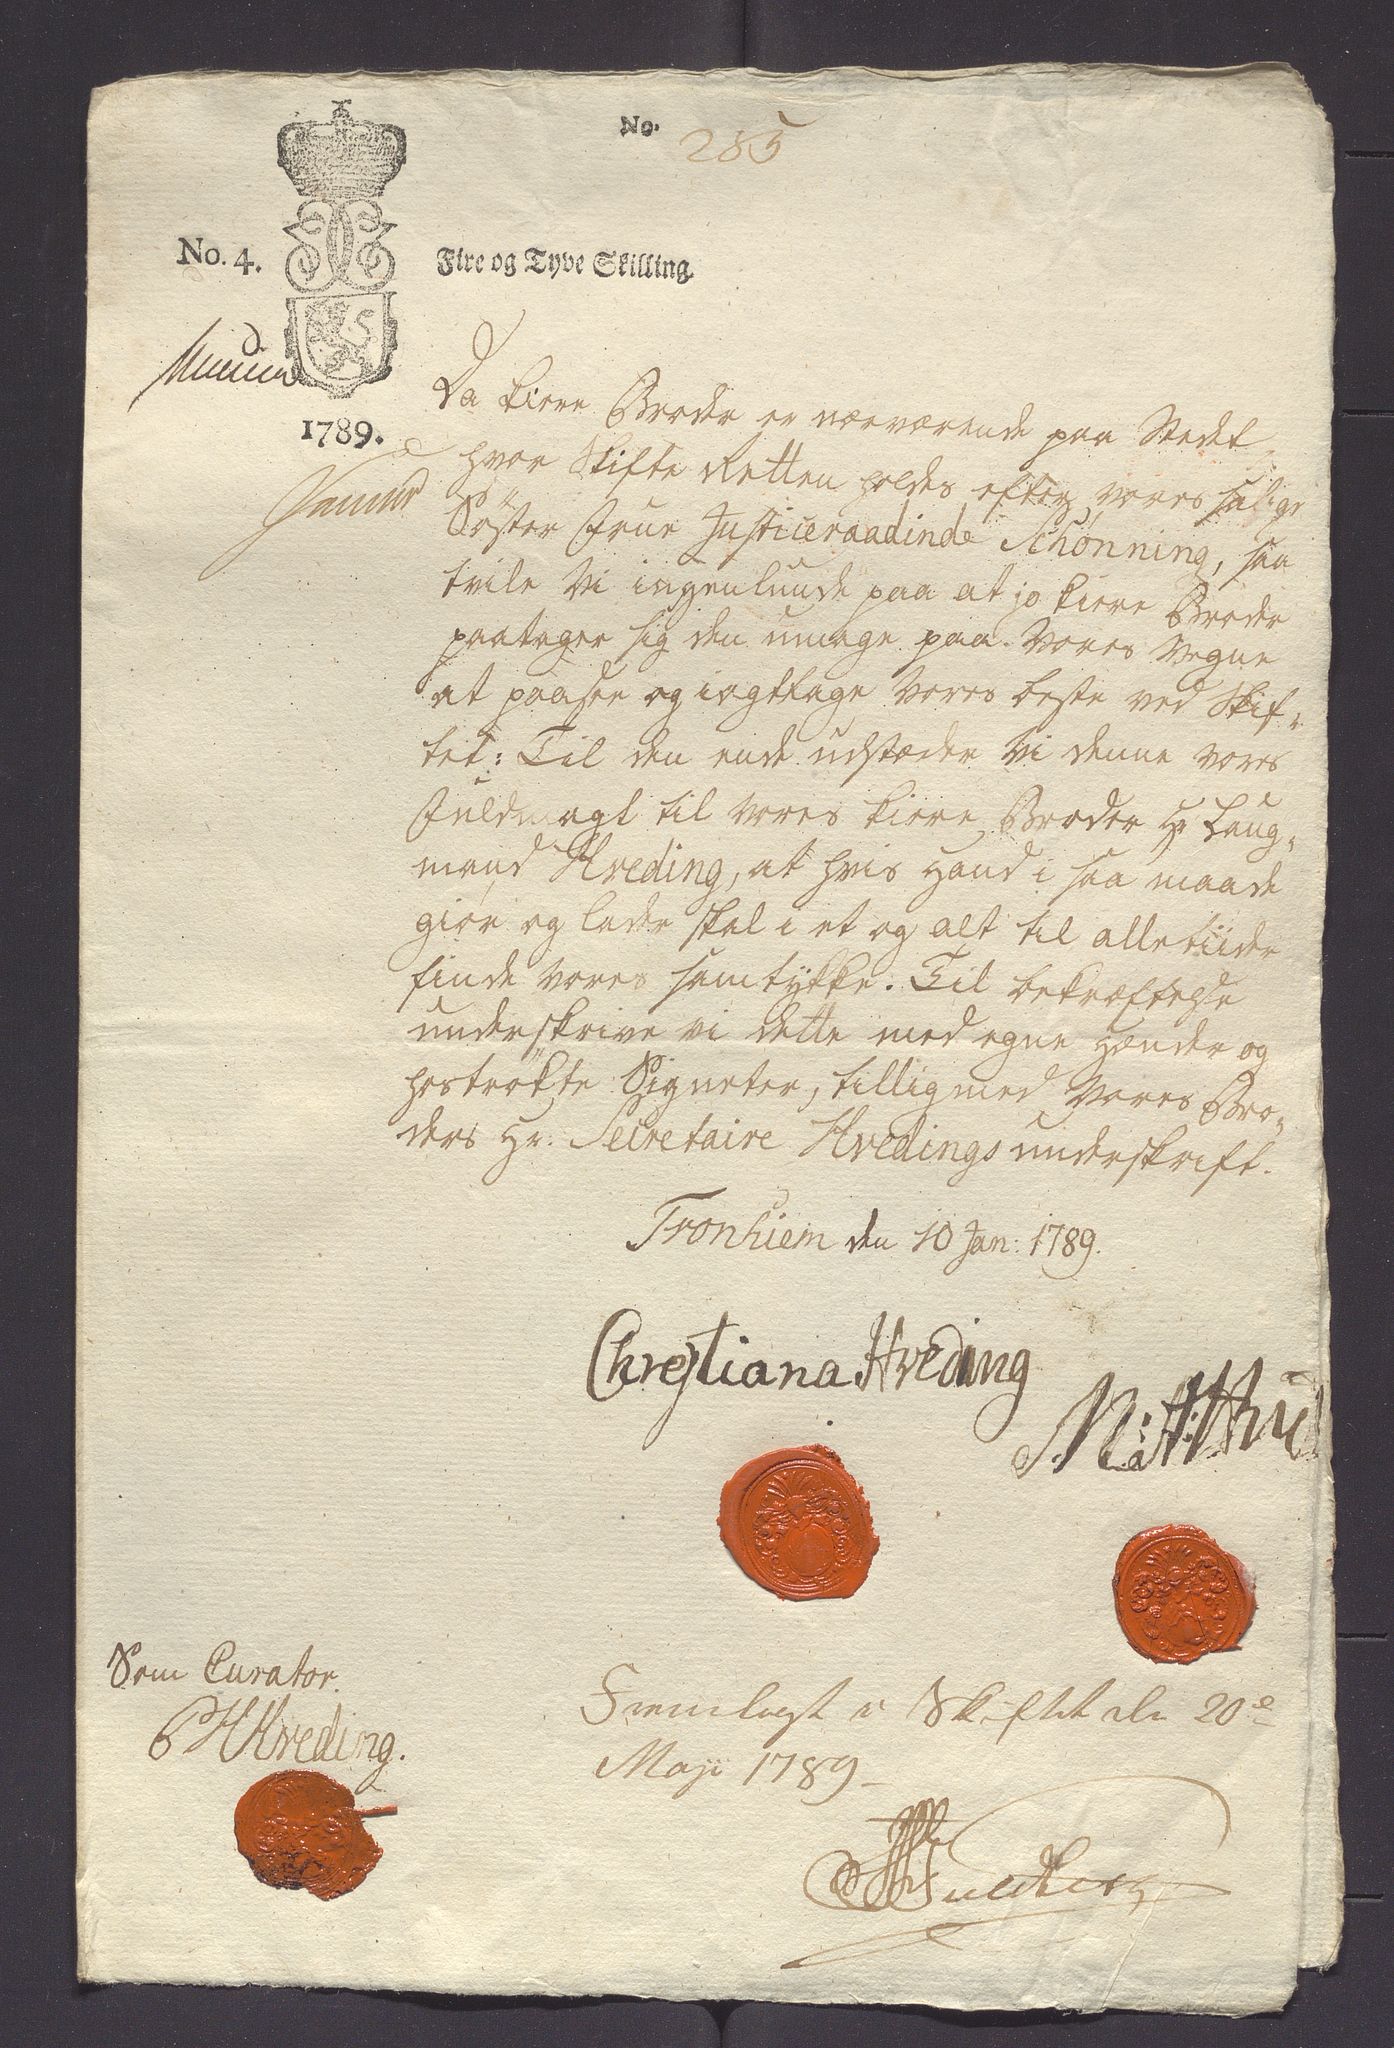 No. 285
No. 4. Fire og Tyve Skilling.
1789.
Da kiere Broder er nærværende paa Stedet
hvor Skifte Retten holdes efter vores salige
Söster Frue Justiceraadinde Schønning, saa
tvile Vi ingenlunde paa at jo kiere Broder
paatager sig den umage paa Vores Vegne
at paasee og iagttage Vores beste ved Skif-
tet: Til den ende udstæder Vi denne Vores
Fuldmagt til Vores kiere Broder Hr Laug-
mand Hveding, at hvis Hand i saa maade
giør og lader skal i et og alt til alle tiider
finde Vores samtykke. Til bekræftelse
underskrive vi dette med egne Hænder og
hoströkte Signeter, tillig med Vores Bro-
ders Hr. Secretaire Hvedings underskrift.
Tronhiem den 10 Jan: 1789.
Chrestiana Hveding
M: A:
Som Curator.
Hveding.
Fremlagt i Skiftet den 20de
Maji 1789